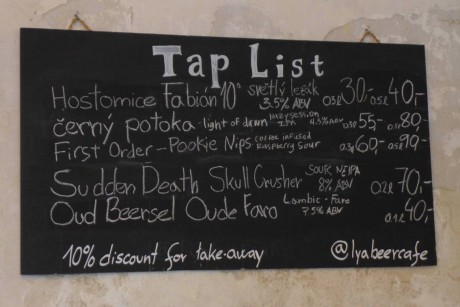 Tap List
Hostomice Fabián 10° světlý ležák 3.5% ABV 0.3l 30,- 0.5l 40,-
černý potoka - light of dawn hazy session IPA 0.3l 55,- 80,-
First Order - Pookie Nips coffee infused Raspberry Sour 0.3l 60,- 0.5l 99,-
Sudden Death Skull Crusher Sour NEIPA 8% ABV 0.2l 70,-
Oud Beersel Oude Faro Lambic - Faro 7.5% ABV 0.1l 40,-
10% discount for take-away @lyabeercafe